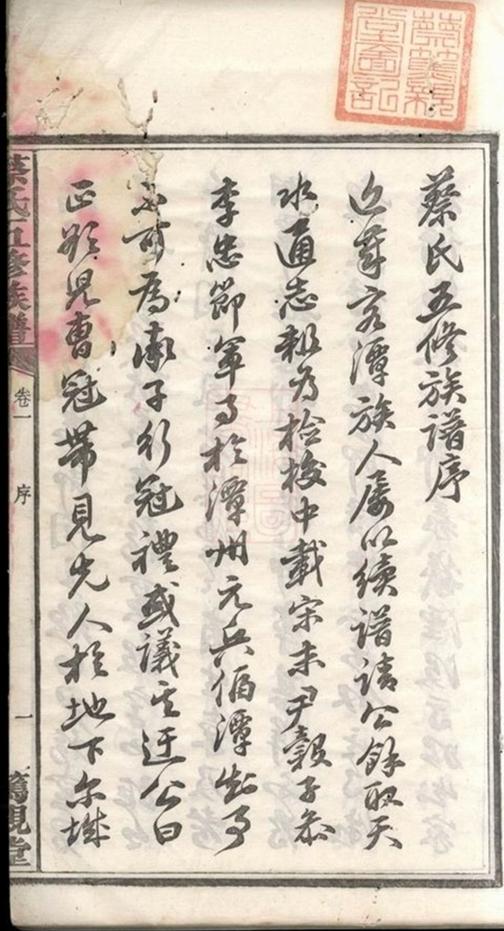 蔡氏五修族譜序
近寓潭族人屢以續譜請公餘取天
水通志報為檢校中載宋末尹穀子參
李忠節軍事於潭州元兵傾潭知事
不可為衛子行冠禮或議其迂公曰
正欲兒曹冠帶見先人於地下爾城
蔡氏五修族譜
卷一
序
一
篤親堂